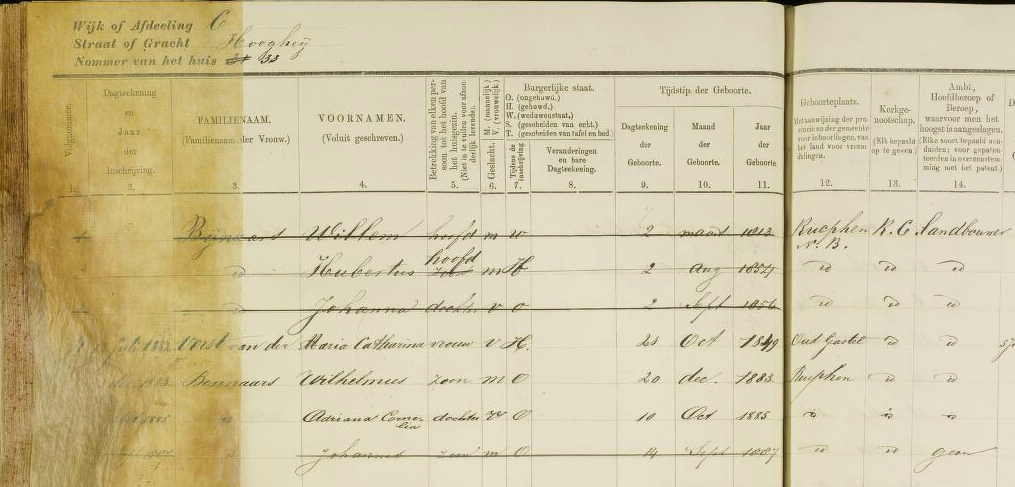 Wijk of Afdeeling C
Straat of Gracht Hoogheij
Nommer van het huis 33
Volgnommer.
1.
Dagteekening
en
Jaar
der
inschrijving.
2.
FAMILIENAAM.
(Familienaam der Vrouw.)
3.
VOORNAMEN.
(Voluit geschreven.)
4.
Betrekking van elken per-
soon tot het hoofd van
het huisgezin.
(Niet in te vullen voor afzon-
derlijk levende.)
5.
Geslacht. M. (mannelijk) V. (vrouwelijk)
6.
Burgerlijke staat.
O. (ongehuwd.)
H. (gehuwd.)
W. (weduwenstaat.)
S. (gescheiden van echt.)
T. (gescheiden van tafel en bed.)
Tijdens de
inschrijving
7.
Veranderingen
en bare
Dagteekening.
8.
Tijdstip der Geboorte.
Dagteekening
der
Geboorte.
9.
Maand
der
Geboorte.
10.
Jaar
der
Geboorte.
11.
Geboorteplaats.
Met aanwijzing der pro
vincie en der gemeente
voor inboorlingen, van
het land voor vreem
delingen.
12.
Kerkge-
nootschap.
(Elk bepaald
op te geven.)
13.
Ambt,
Hoofdberoep of
Beroep,
waarvoor men het
hoogst is aangeslagen.
(Elke soort bepaald aan-
duiden; voor gepaten-
teerden in overeenstem-
ming met het patent.)
14.
Willem hoofd m w 2 maart 1813 Rucphen R.C. Landbouwer
N. B.
hoofd
id Hubertus zoon m H 2 Aug 1854 id id id
id Johanna dochter v o 2 Sept 1856 id id id
Juli 1882 Vorst van der Maria Catharina vrouw v H. 21 Oct 1849 Oud Gastel id id
1883 Bennaars Wilhelmus zoon m O 20 dec. 1883 Rucphen id id
1885 id Adriana Corne- dochter O 10 Oct 1885 id id id
lia
id Johannes zoon m O 14 Sept 1887 id id geen